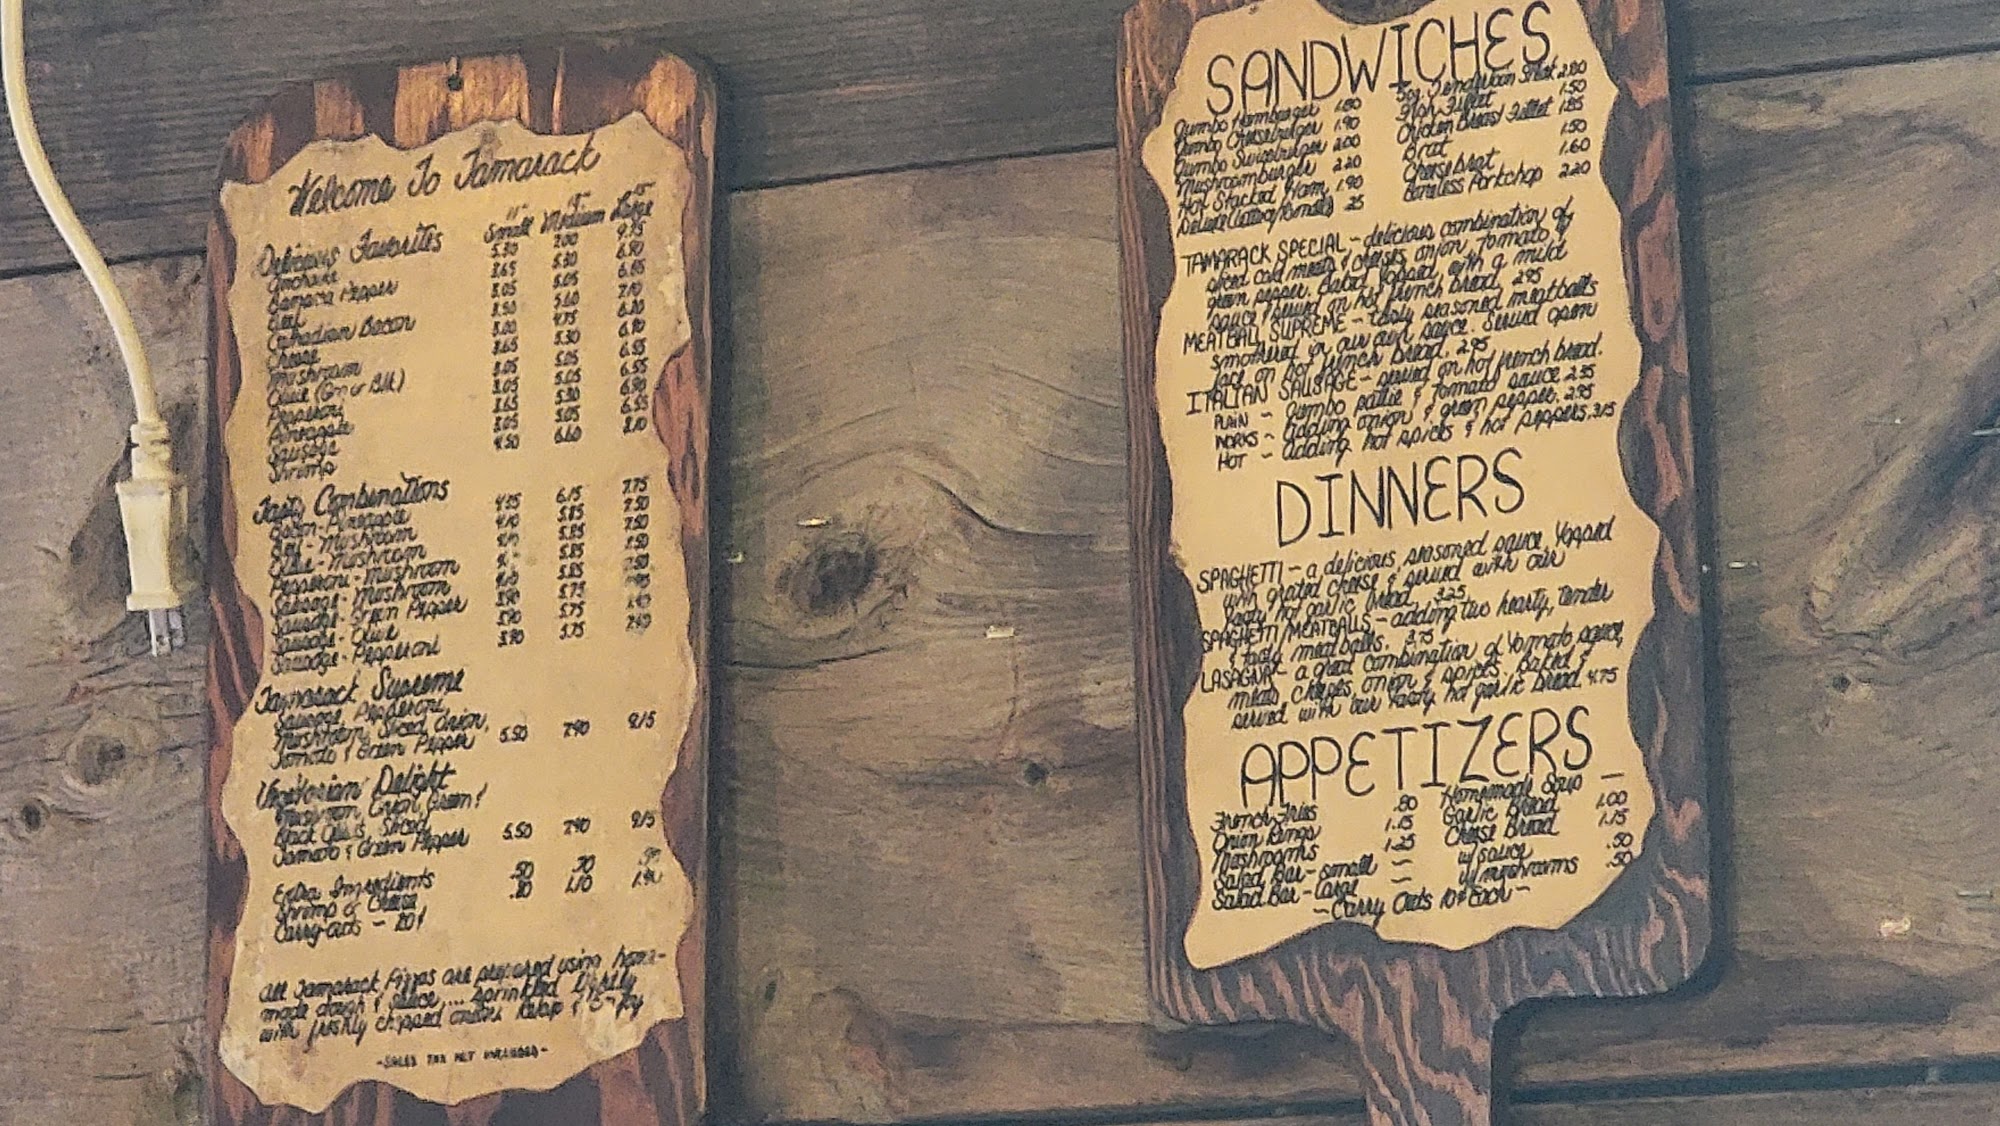 Welcome To Tamarack
11" 13" 15"
Delicious Favorites Small Medium Large
Anchovie 5.30 7.00 9.75
Banana Pepper 3.65 5.30 6.90
Beef 3.05 5.05 6.55
Canadian Bacon 3.50 5.60 7.10
Cheese 3.00 4.75 6.20
Mushroom 3.65 5.30 6.90
Olive (Grn or Blk) 3.05 5.05 6.55
Pepperoni 3.05 5.05 6.55
Pineapple 3.65 5.30 6.90
Sausage 3.05 5.05 6.55
Shrimp 4.50 6.60 8.10
Tasty Combinations
Bacon-Pineapple 4.35 6.15 7.75
Beef-Mushroom 4.10 5.85 7.50
Olive-Mushroom 5.85 7.50
Pepperoni-Mushroom 5.85 7.50
Sausage-Mushroom 4.10 5.85 7.50
Sausage-Green Pepper 3.90 5.75
Sausage-Olive 3.90 5.75 7.40
Sausage-Pepperoni 3.90 5.75 7.40
Tamarack Supreme
Sausage, Pepperoni,
Mushroom, Sliced Onion,
Tomato & Green Pepper 5.50 7.40 9.15
Vegetarian Delight
Mushroom, Onion, Green &
Black Olives, Sliced
Tomato & Green Pepper 5.50 7.40 9.15
Extra Ingredients .50 .70
Shrimp or Cheese .80 1.10
Carry-outs - 20¢
All Tamarack Pizzas are prepared using home-
made dough & sauce... sprinkled lightly
with freshly chopped onions. Relap & Enjoy
-SALES TAX NOT INCLUDED-
SANDWICHES
Jumbo Hamburger 1.80 5oz. Tenderloin Steak 2.80
Jumbo Cheeseburger 1.90 Fish Fillet 1.50
Jumbo Swissburger 2.00 Chicken Breast Fillet 1.85
Mushroomburger 2.20 Brat 1.50
Hot Stacked Ham 1.90 Cheesebrat 1.60
Deluxe (Lettuce/Tomato) .25 Boneless Porkchop 2.20
TAMARACK SPECIAL - delicious combination of
sliced cold meats & cheeses, onion, tomato &
green pepper. Baked, topped with a mild
sauce & served on hot french bread. 2.95
MEATBALL SUPREME - tasty seasoned meatballs
smothered in our own sauce. Served open
face on hot french bread. 2.95
ITALIAN SAUSAGE - served on hot french bread.
PLAIN - Jumbo pattie & tomato sauce 2.55
WORKS - adding onion & green pepper. 2.95
HOT - adding hot spices & hot peppers. 3.15
DINNERS
SPAGHETTI - a delicious, seasoned sauce topped
with grated cheese & served with our
tasty hot garlic bread. 3.25
SPAGHETTI/MEATBALLS - adding two hearty, tender
& tasty meatballs. 3.75
LASAGNA - a great combination of tomato sauce,
meats, cheeses, onion & spices. Baked &
served with our tasty hot garlic bread. 4.75
APPETIZERS
French Fries .80 Homemade Soup -
Onion Rings 1.15 Garlic Bread 1.00
Mushrooms 1.25 Cheese Bread 1.15
Salad Bar-small - w/sauce .50
Salad Bar-Large - w/mushrooms .50
-Carry Outs 10¢ Each-